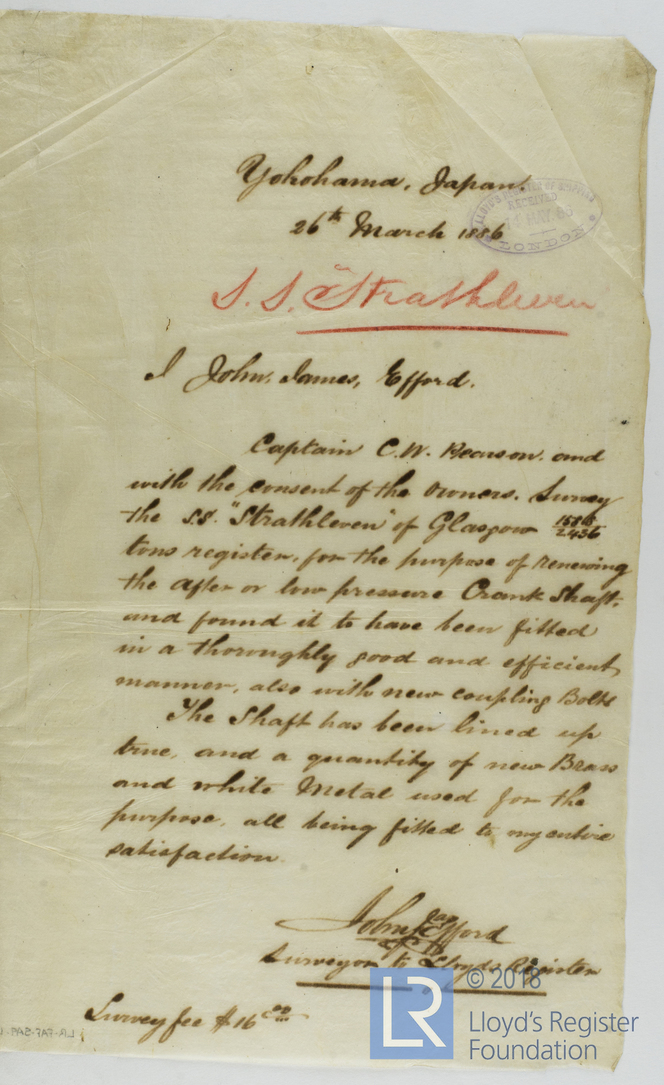 Yokohama, Japan.
26th March 1886
LLOYD'S REGISTER OF SHIPPING
RECEIVED
MAY 86
LONDON
S.S. "Strathleven
I John, James, Efford.
Captain C.W. Pearson. and
with the consent of the owners. Survey
the S.S. "Strathleven" of Glasgow 1588/2436
tons register, for the purpose of renewing
the after or low pressure Crank Shaft,
and found it to have been fitted
in a thoroughly good and efficient
manner, also with new coupling Bolts
The Shaft has been lined up
true, and a quantity of new Brass
and white Metal used for the
purpose, all being fitted to my entire
satisfaction.
John Jas Efford
Surveyor to Lloyds Register
Survey fee $16.00
© 2018
LR
Lloyd's Register
Foundation